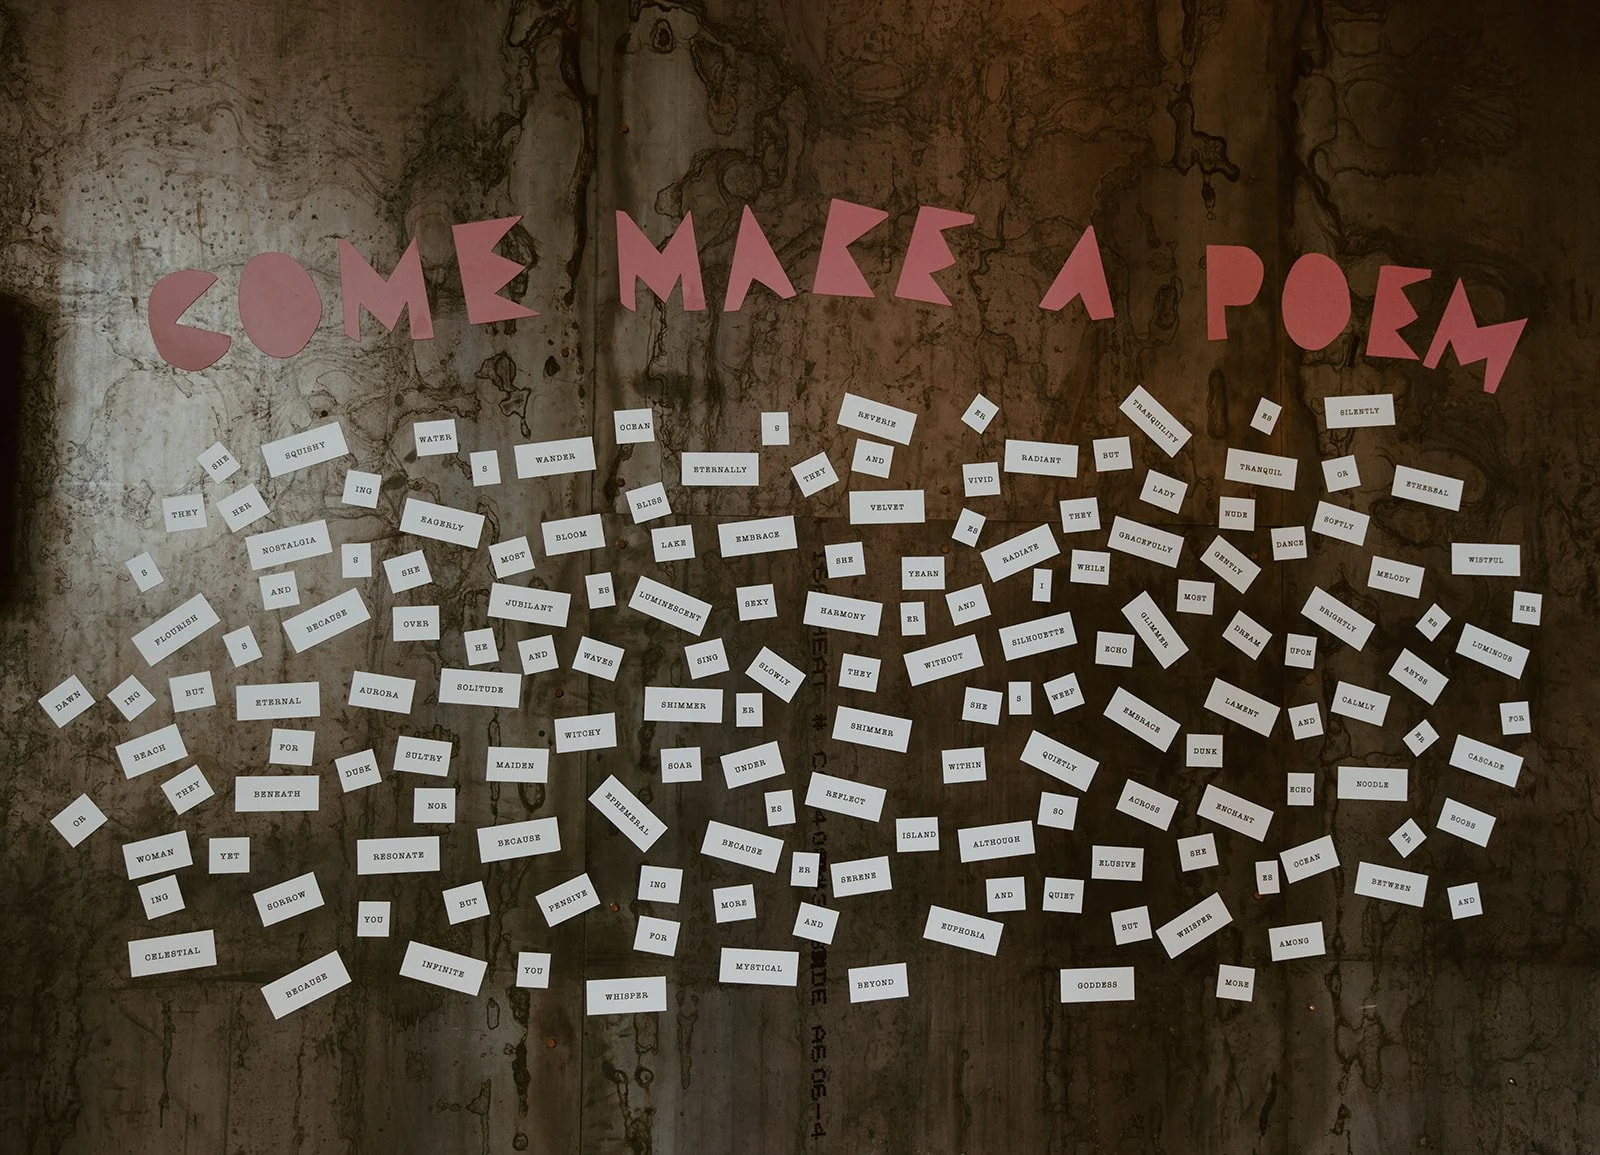 COME MAKE A POEM
REVERIE ER TRANQUILITY ES SILENTLY
SHE SQUISHY WATER S WANDER OCEAN S ETERNALLY THEY AND VIVID RADIANT BUT TRANQUIL OR ETHEREAL
THEY HER ING EAGERLY BLISS VELVET ES LADY THEY NUDE SOFTLY
S NOSTALGIA S SHE MOST BLOOM LAKE EMBRACE SHE YEARN RADIATE WHILE GRACEFULLY GENTLY DANCE MELODY WISTFUL
FLOURISH S AND BECAUSE OVER HE JUBILANT ES LUMINESCENT SEXY HARMONY ER AND I SILHOUETTE MOST GLIMMER DREAM BRIGHTLY ES HER
DAWN ING BUT ETERNAL AURORA SOLITUDE AND WAVES SING SLOWLY THEY WITHOUT ECHO UPON ABYSS LUMINOUS
BEACH FOR SULTRY WITCHY SHIMMER ER SHIMMER SHE S WEEP EMBRACE LAMENT AND CALMLY ER FOR
THEY BENEATH DUSK NOR MAIDEN SOAR UNDER REFLECT WITHIN QUIETLY DUNK ECHO NOODLE CASCADE
OR WOMAN YET RESONATE BECAUSE EPHEMERAL BECAUSE ES ISLAND ALTHOUGH SO ACROSS ENCHANT ER BOOBS
ING SORROW YOU BUT PENSIVE ING MORE ER SERENE AND QUIET ELUSIVE SHE ES OCEAN BETWEEN AND
CELESTIAL BECAUSE INFINITE YOU FOR AND EUPHORIA BUT WHISPER AMONG
WHISPER MYSTICAL BEYOND GODDESS MORE